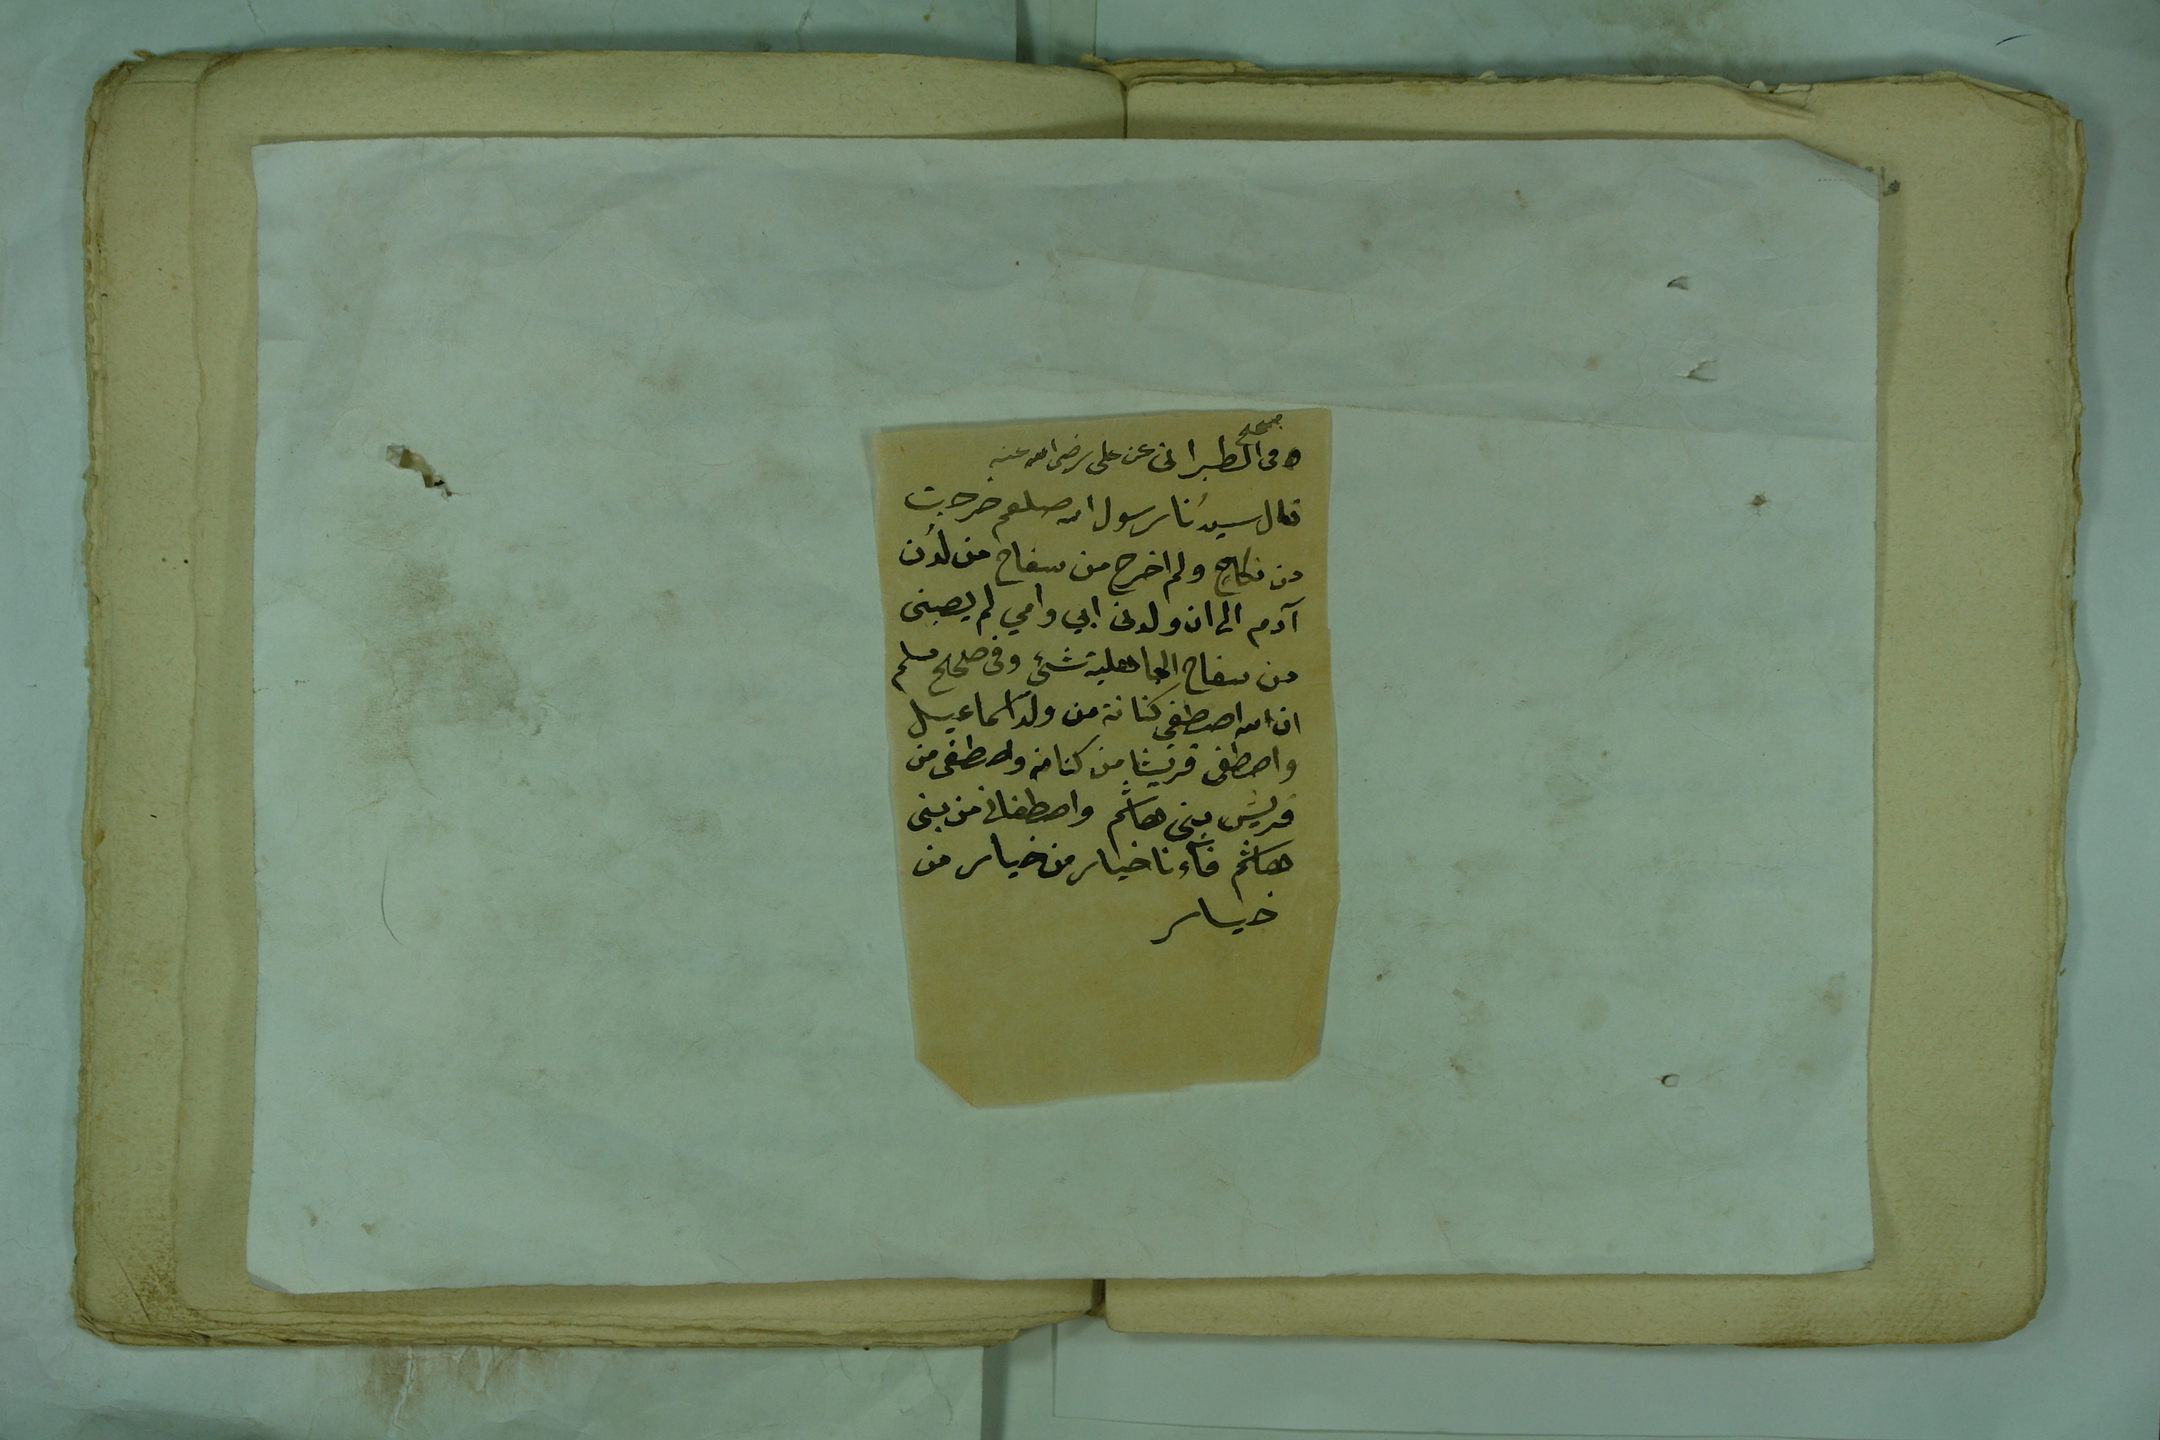 صحيح
و فى الطبرانى عن على رضى الله عنه
قال سيدُنا رسول الله صلعم خرجت
من نكاح ولم اخرج من سفاح من لدُن
آدم الى ان ولدنى ابي وامي لم يصبنى
من سفاح الجاهلية شئ وفى صحيح مسلم
ان الله اصطفى كنانة من ولد اسماعيل
واصطفى قريشا من كنانه واصطفى من
قريش بنى هاشم واصطفانى من بنى
هاشم فآءنا خيار من خيار من
خيار